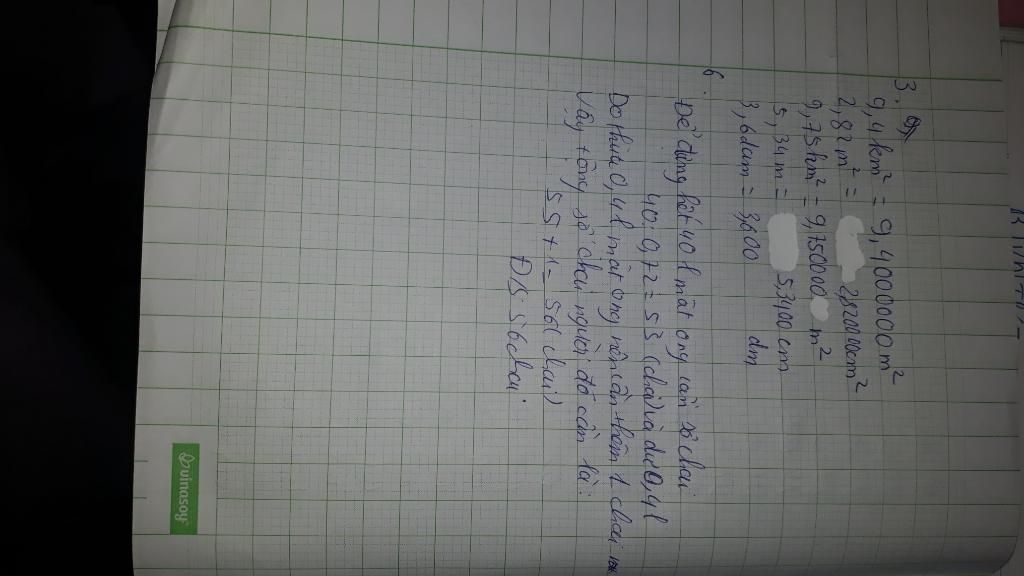 3. a,
9,4 km² = 9,4000000 m²
2,82 m² = 28200 cm²
9,75 hm² = 9,750000 m²
5,34 m = 5,3400 cm
3,6 dam = 3,600 dm
6. Để dùng hết 40 l mật ong cần số chai
40 : 0,72 = 55 (chai) và dư 0,4 l
Do thừa 0,4 l mật ong nên cần thêm 1 chai
Vậy tổng số chai người đó cần là:
55 + 1 = 56 (chai)
Đ/S 56 chai.
vinasoy